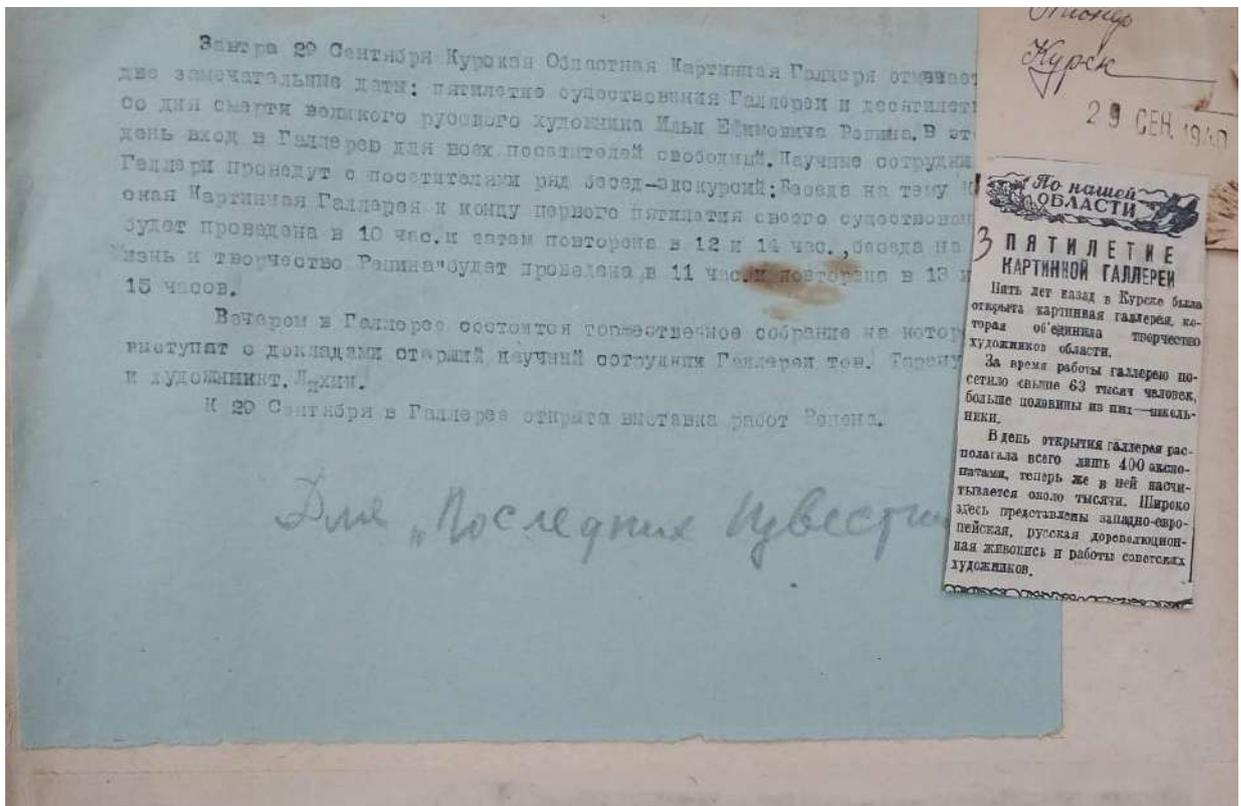 Завтра 29 Сентября Курская Областная Картинная Галлеря отмечает
две замечательные даты: пятилетие существования Галлереи и десятилети
со дня смерти великого русского художника Ильи Ефимовича Репина. В это
день вход в Галлерею для всех посетителей свободный. Научные сотрудни
Галлери проведут с посетителями ряд бесед-экскурсий: Беседа на тему К
ская Картинная Галлерея к концу первого пятилетия своего существован
будет проведена в 10 час. и затем повторена в 12 и 14 час., беседа на
Жизнь и творчество Репина" будет проведена в 11 час. и повторена в 13 и
15 часов.
Вечером в Галлерее состоится торжественное собрание на котор
выступят с докладами старший научный сотрудник Галлереи тов.
и художникт. Ляхин.
К 29 Сентября в Галлерее открыта выставка работ Репена.
Для „Последних Известий
Пионер
Курск
29 СЕН. 1940
По нашей
ОБЛАСТИ
3 ПЯТИЛЕТИЕ
КАРТИННОЙ ГАЛЛЕРЕИ
Пять лет назад в Курске была
открыта картинная галлерея, ко-
торая об'единила творчество
художников области.
За время работы галлерею по-
сетило свыше 63 тысяч человек,
больше половины из них—школь-
ники.
В день открытия галлерея рас-
полагала всего лишь 400 экспо-
натами, теперь же в ней насчи-
тывается около тысячи. Широко
здесь представлены западно-евро-
пейская, русская дореволюцион-
ная живопись и работы советских
художников.